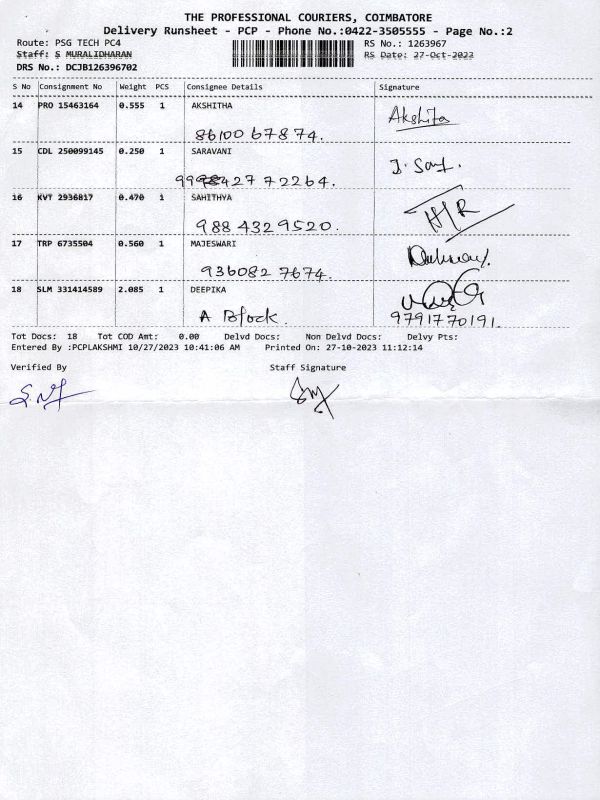 THE PROFESSIONAL COURIERS, COIMBATORE
Delivery Runsheet - PCP - Phone No.:0422-3505555 - Page No.:2
Route: PSG TECH PC4 RS No.: 1263967
Staff: S MURALIDHARAN RS Date: 27-Oct-2023
DRS No.: DCJB126396702
S No Consignment No Weight PCS Consignee Details Signature
14 PRO 15463164 0.555 1 AKSHITHA Akshita
8610067874.
15 CDL 250099145 0.250 1 SARAVANI
16 KVT 2936817 0.470 1 SAHITHYA
988 4329520.
17 TRP 6735504 0.560 1 MAJESWARI
936082 7674.
18 SLM 331414589 2.085 1 DEEPIKA
A Block. 9791770191.
Tot Docs: 18 Tot COD Amt: 0.00 Delvd Docs: Non Delvd Docs: Delvy Pts:
Entered By :PCPLAKSHMI 10/27/2023 10:41:06 AM Printed On: 27-10-2023 11:12:14
Verified By Staff Signature